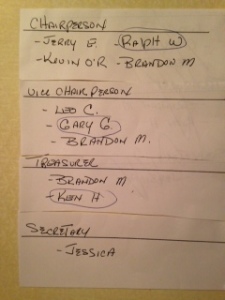 CHAIRPERSON
- JERRY E. - RALPH W
- KEVIN O'R - BRANDON M
VICE CHAIRPERSON
- LEO C.
- GARY G.
- BRANDON M.
TREASURER
- BRANDON M
- KEN H.
SECRETARY
- JESSICA